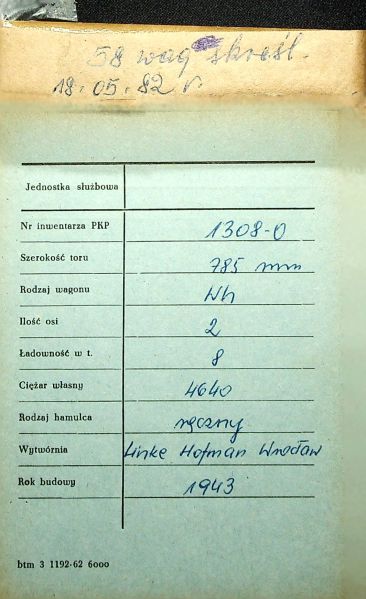 58 wag skreśl.
18.05.82 r.
Jednostka służbowa
Nr inwentarza PKP 1308-0
Szerokość toru 785 mm
Rodzaj wagonu Wh
Ilość osi 2
Ładowność w t. 8
Ciężar własny 4640
Rodzaj hamulca ręczny
Wytwórnia Linke Hofman Wrocław
Rok budowy 1943
btm 3 1192-62 6000